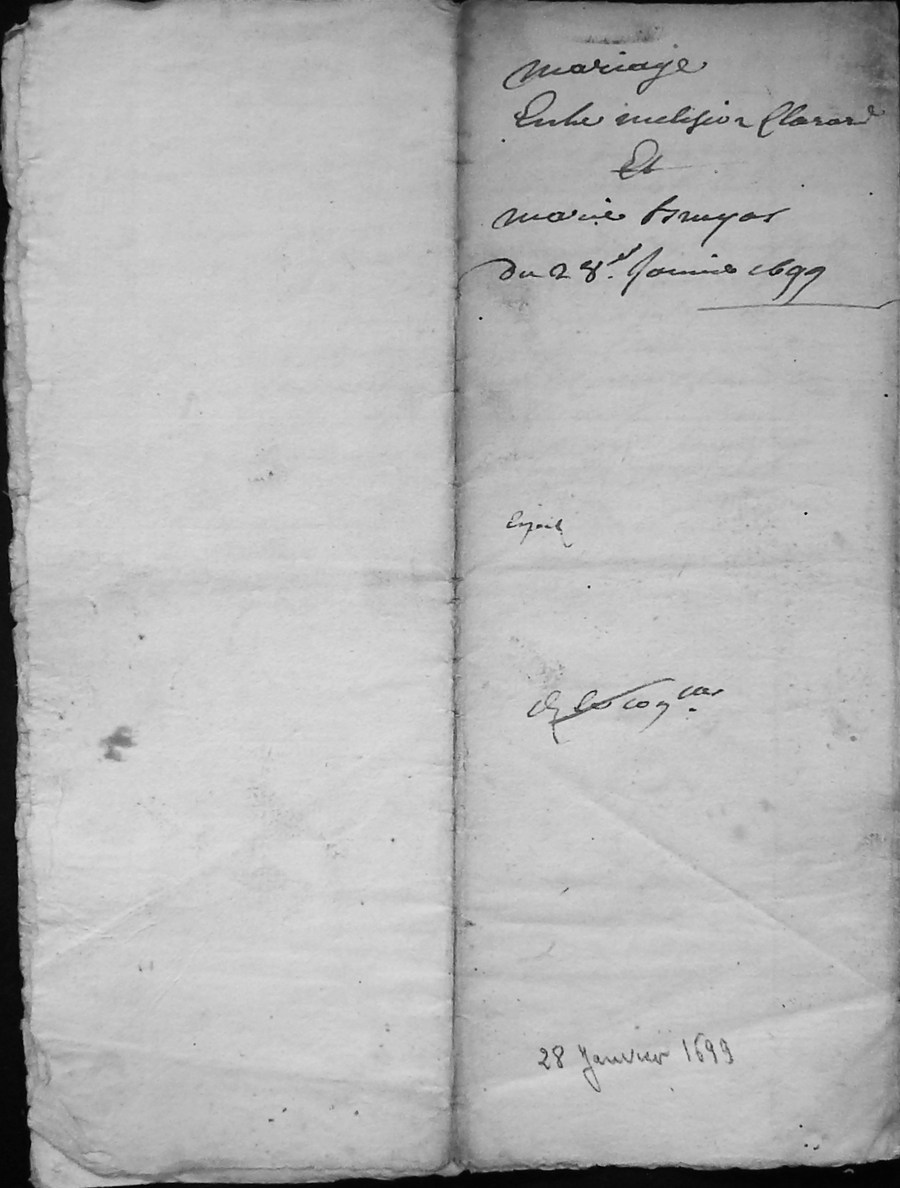 mariage
Entre melchior Clarard
Et
marie bruyas
Du 28.e Janvier 1699
Expedié
28 Janvier 1699